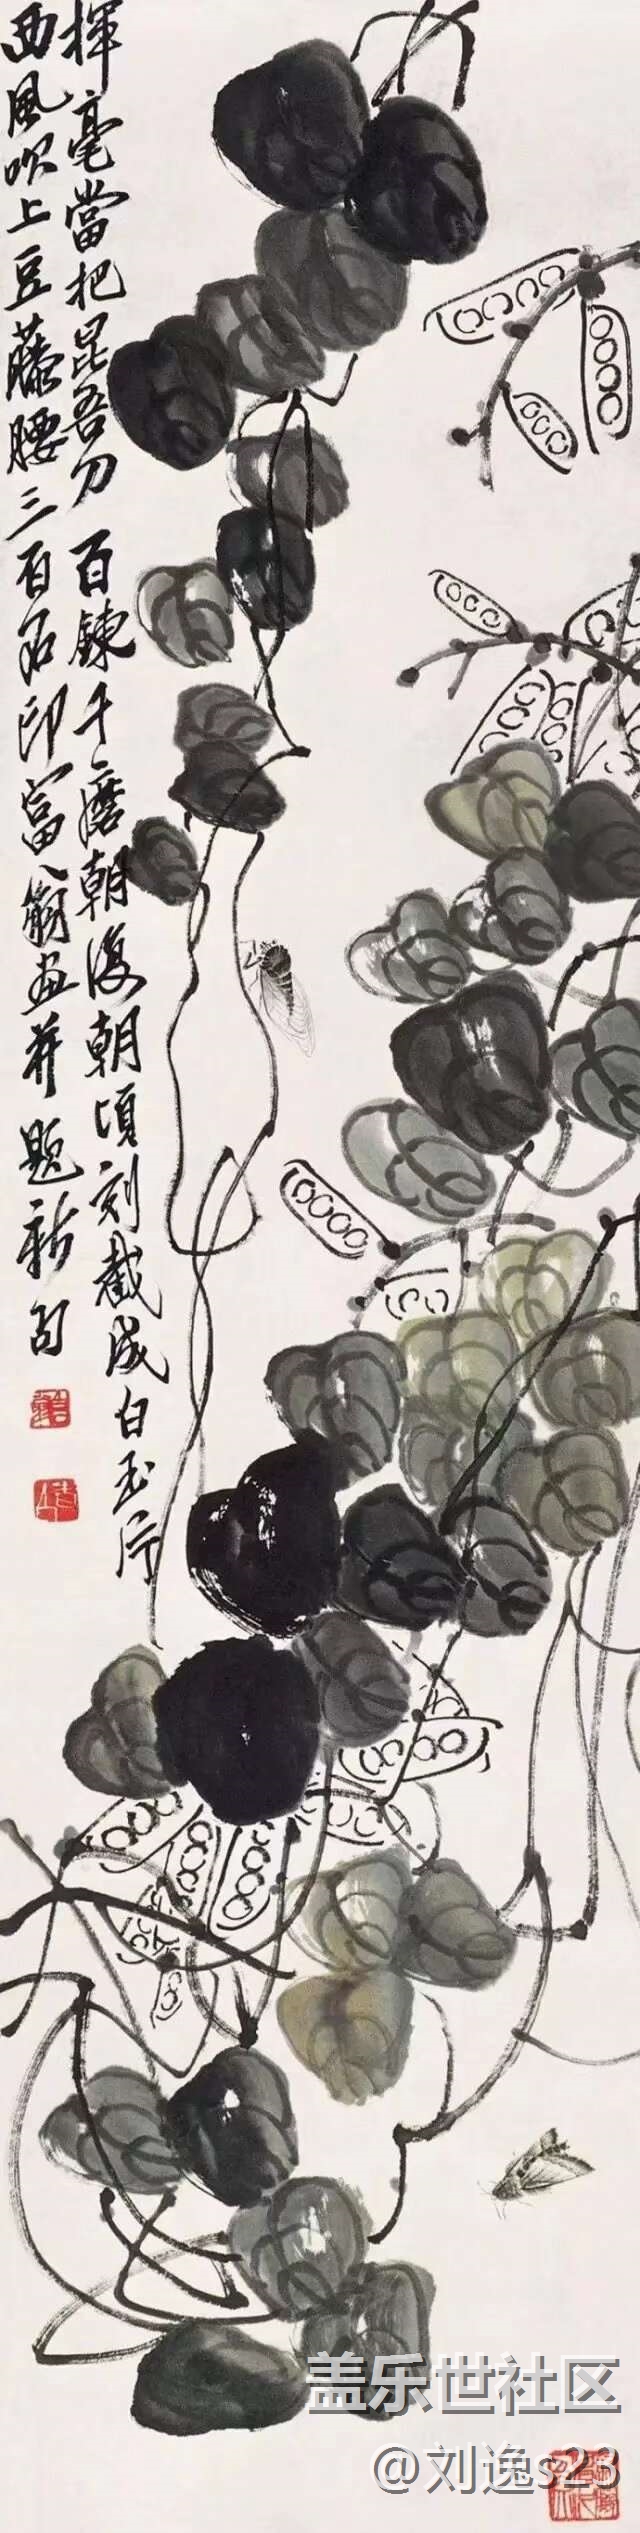 揮毫當把昆吾刀 百鍊千磨朝復朝頃刻截成白玉片
西風吹上豆藤腰三百石印富翁画并題新句
盖乐世社区
@刘逸s23